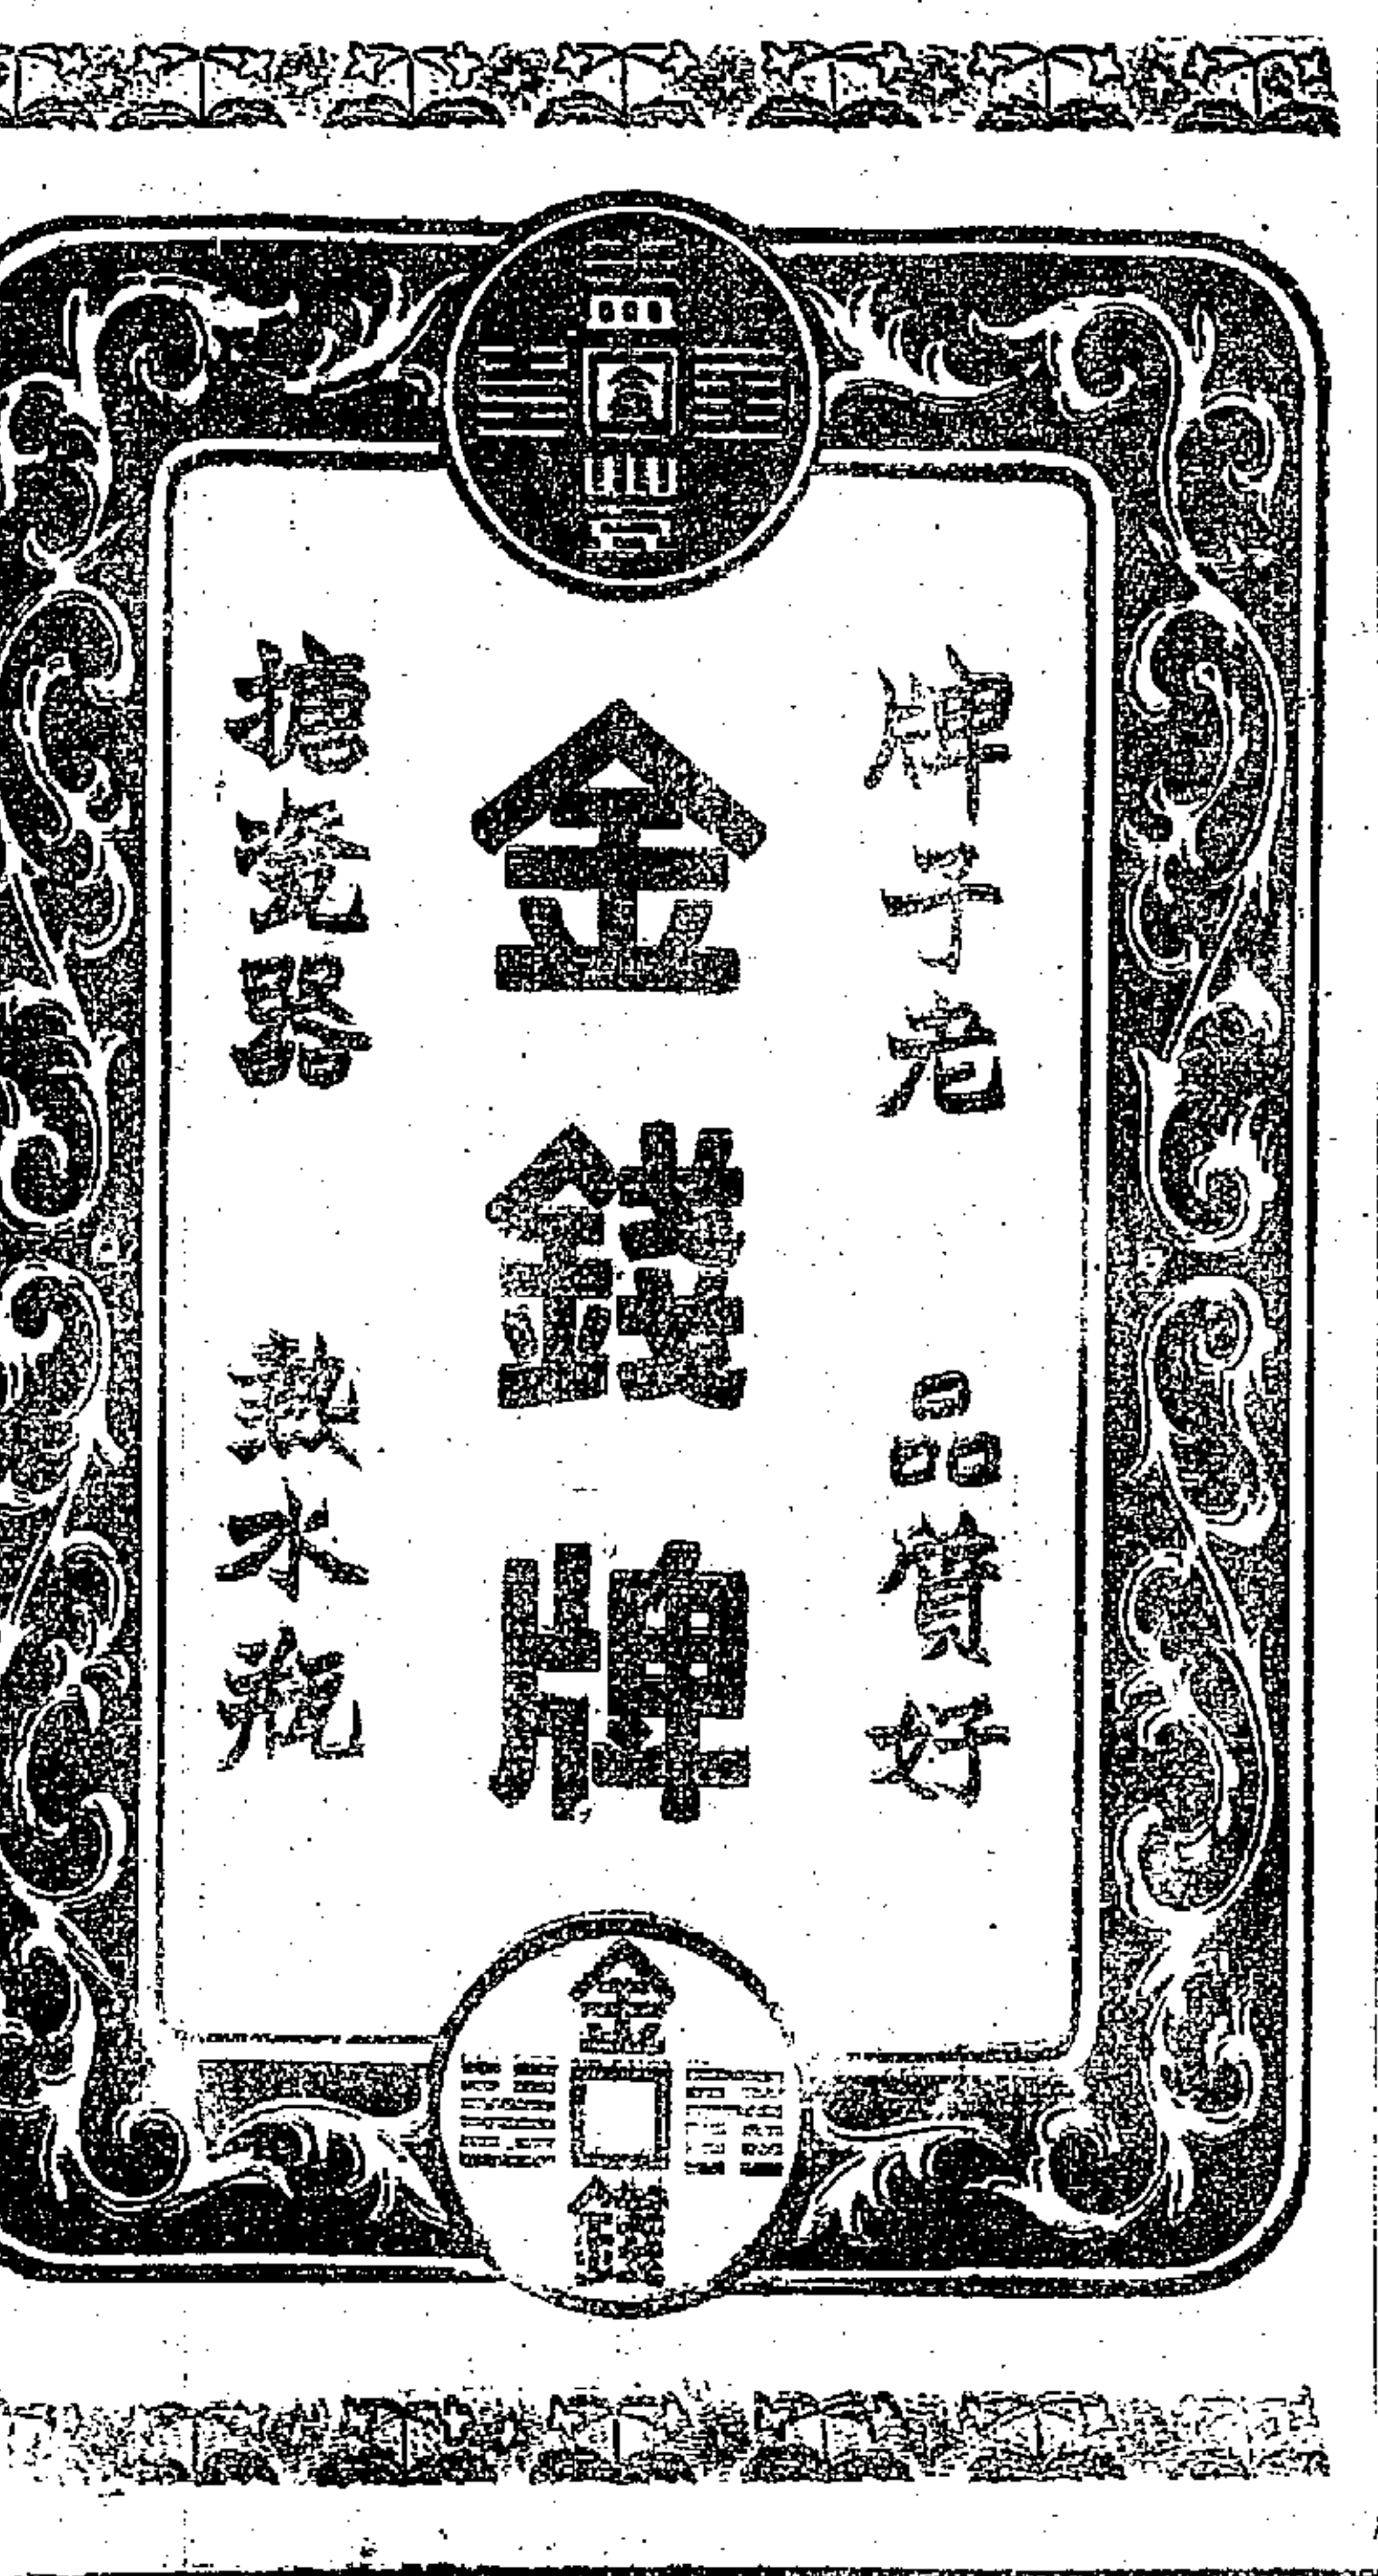 牌子老 品質好
金錢牌
搪瓷器 熱水瓶
金錢